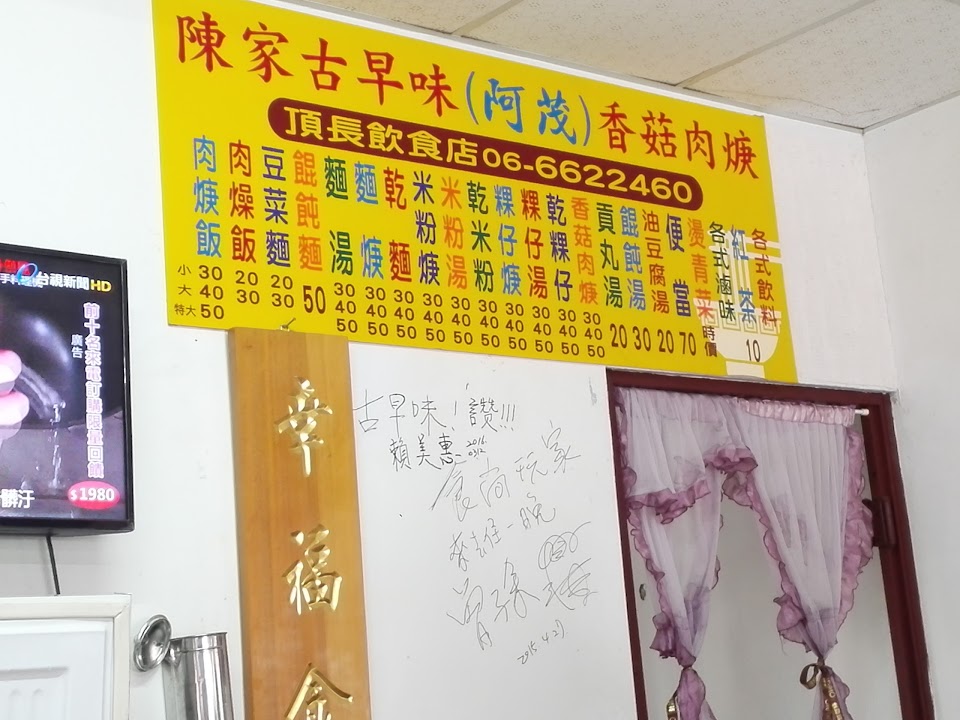 陳家古早味(阿茂)香菇肉焿
頂長飲食店06-6622460
肉焿飯 30 40 50
肉燥飯 20 30
豆菜麵 20 30
餛飩麵 50
麵湯 30 40 50
麵焿 30 40 50
乾麵 30 40 50
米粉焿 30 40 50
米粉湯 30 40 50
乾米粉 30 40 50
粿仔焿 30 40 50
粿仔湯 30 40 50
乾粿仔 30 40 50
香菇肉焿 30 40 50
貢丸湯 20
餛飩湯 30
油豆腐湯 20
便當 70
燙青菜
各式滷味 時價
紅茶 10
各式飲料
小
大
特大
台視新聞HD
前十名來電訂購限量回饋
廣告
髒汙
$1980
幸福
古早味!讚!!!
賴美惠 2016
食尚玩家
2015.4.21